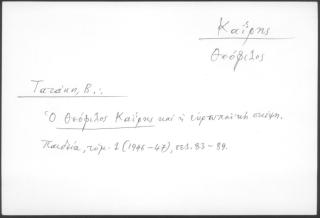 Καΐρης
Θεόφιλος
Τατάκη, Β.:
Ὁ Θεόφιλος Καΐρης καὶ ἡ εὐρωπαϊκὴ σκέψη.
Παιδεία, τόμ. 1 (1946-47), σελ. 83-89.